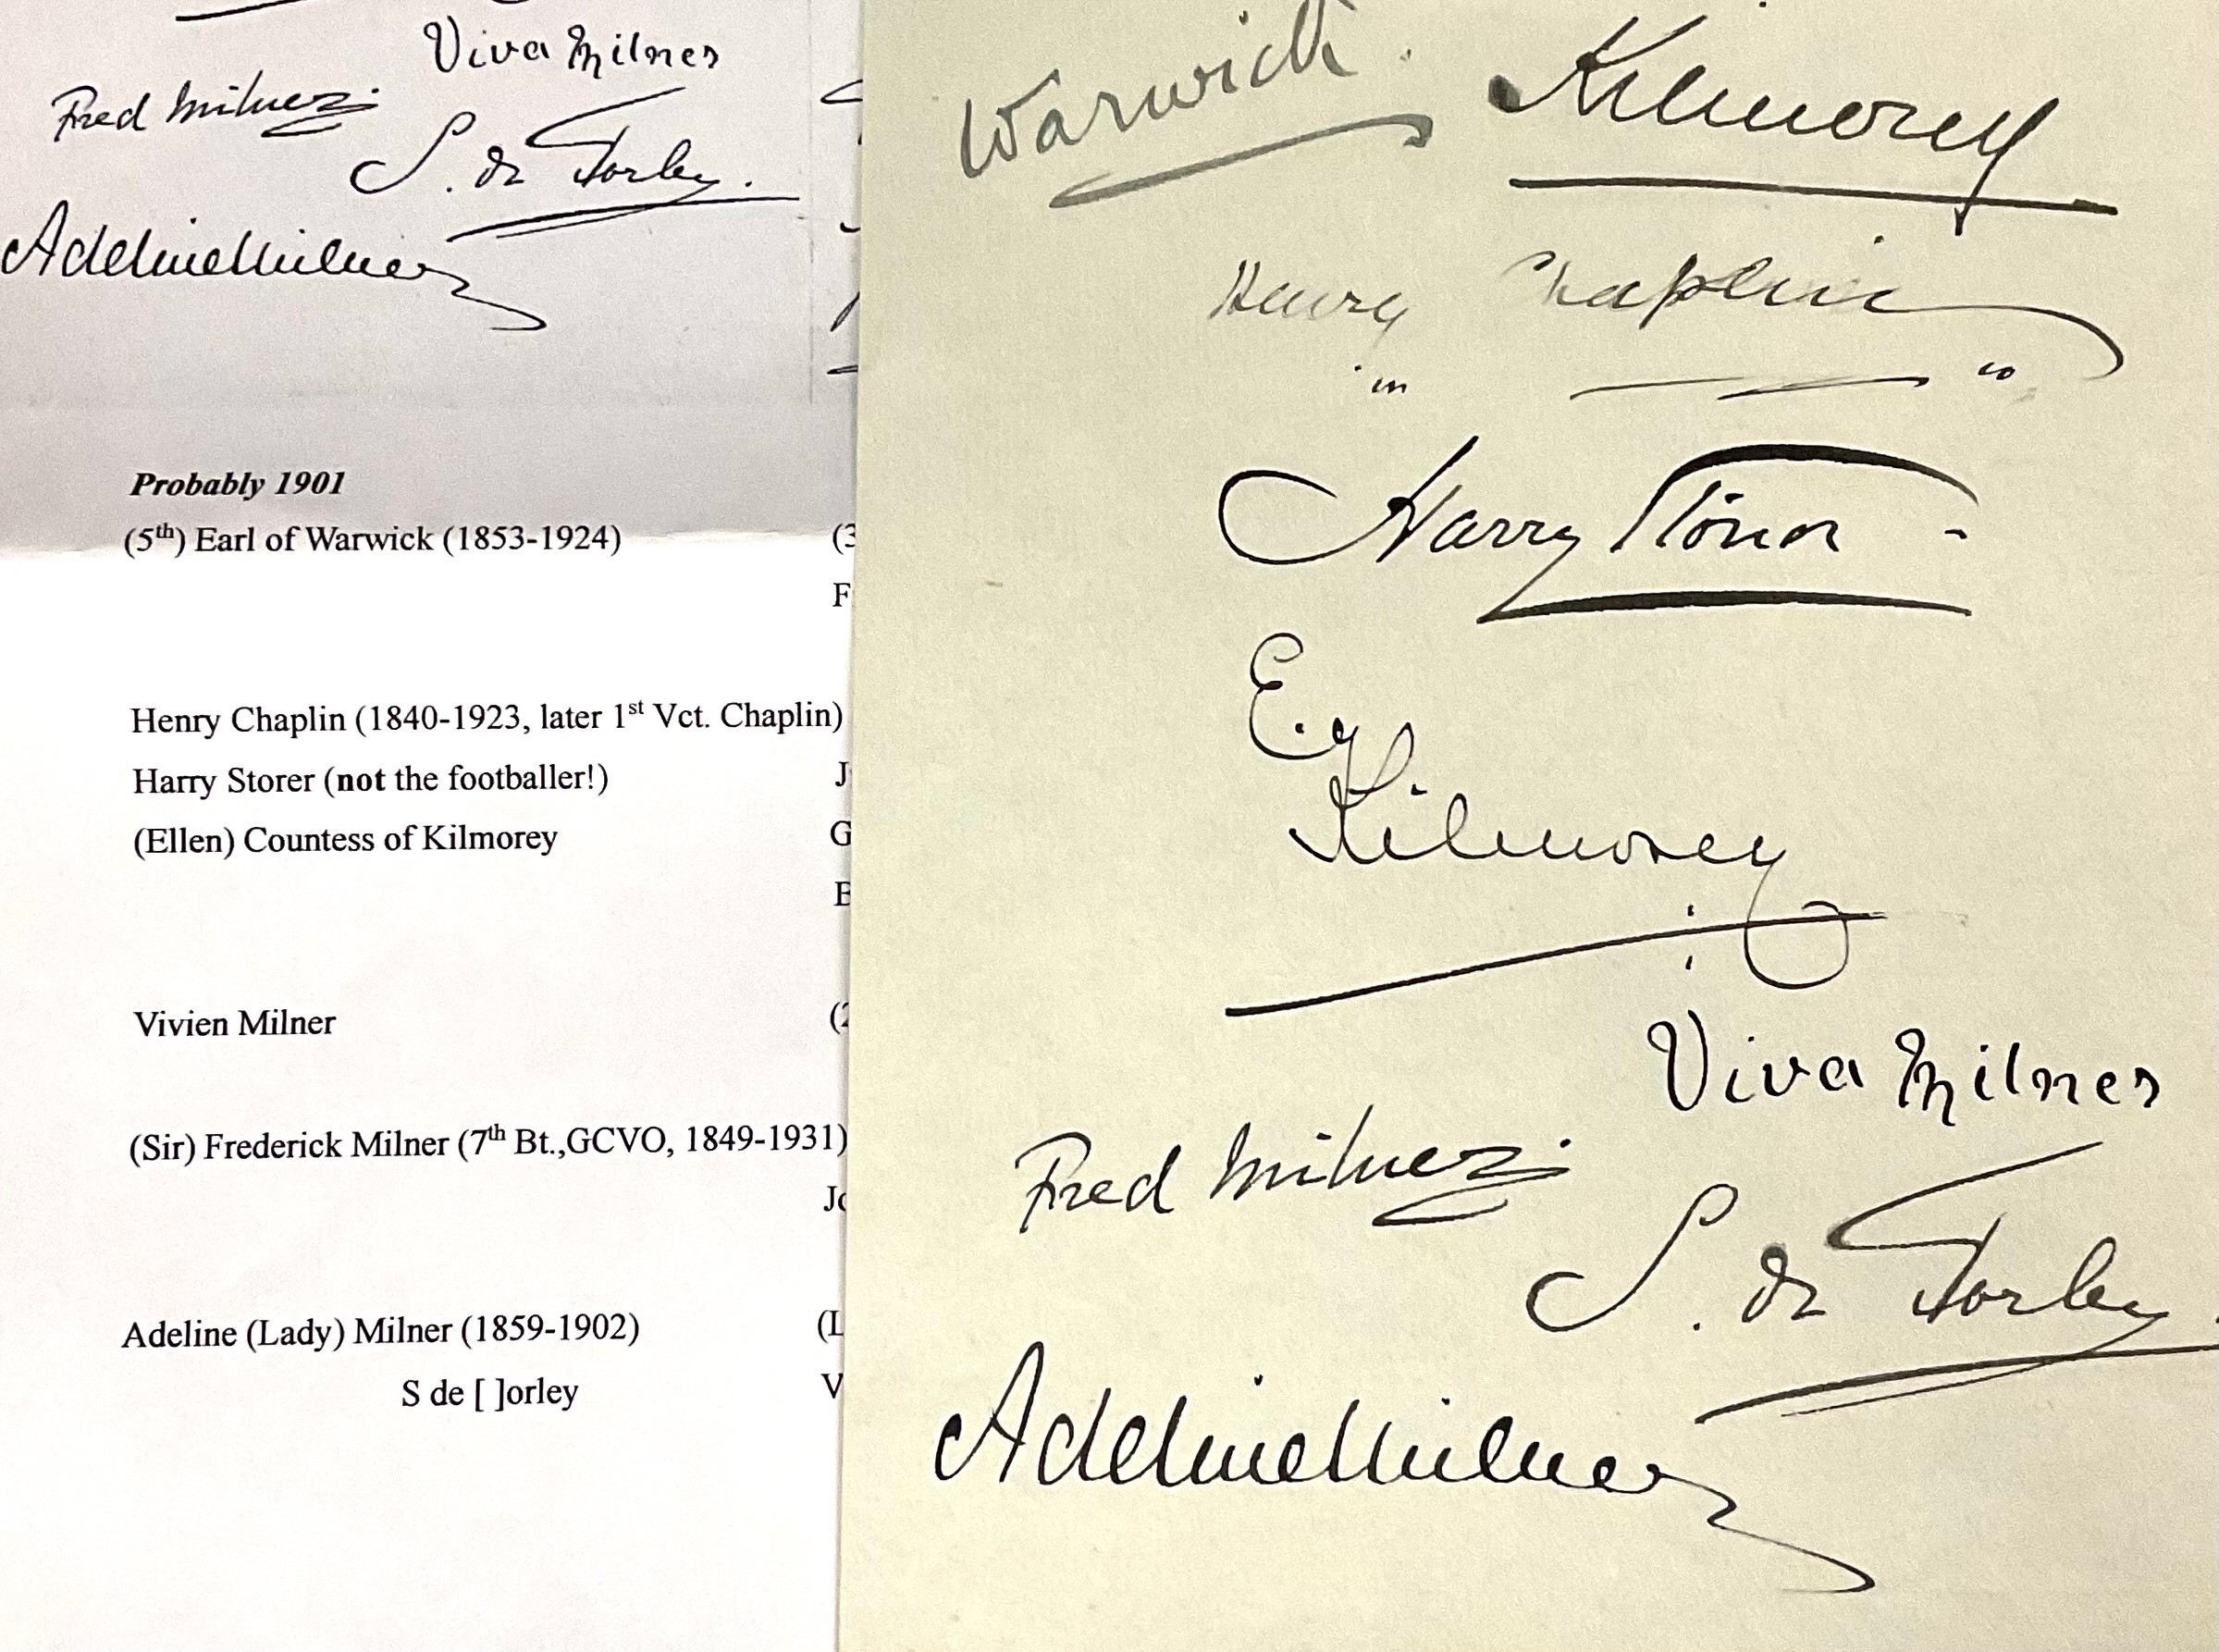 Viva Milner
Fred Milner
S. de Torley.
Adeline Milner
Probably 1901
(5th) Earl of Warwick (1853-1924) (3
F
Henry Chaplin (1840-1923, later 1st Vct. Chaplin)
Harry Storer (not the footballer!) J
(Ellen) Countess of Kilmorey G
E
Vivien Milner (2
(Sir) Frederick Milner (7th Bt.,GCVO, 1849-1931)
Jo
Adeline (Lady) Milner (1859-1902) (L
S de [ ]orley V
Warwick.
Kilmorey
Henry Chaplin
Harry Stoner -
E.
Kilmorey
Viva Milner
Fred Milner
S. de Torley.
Adeline Milner